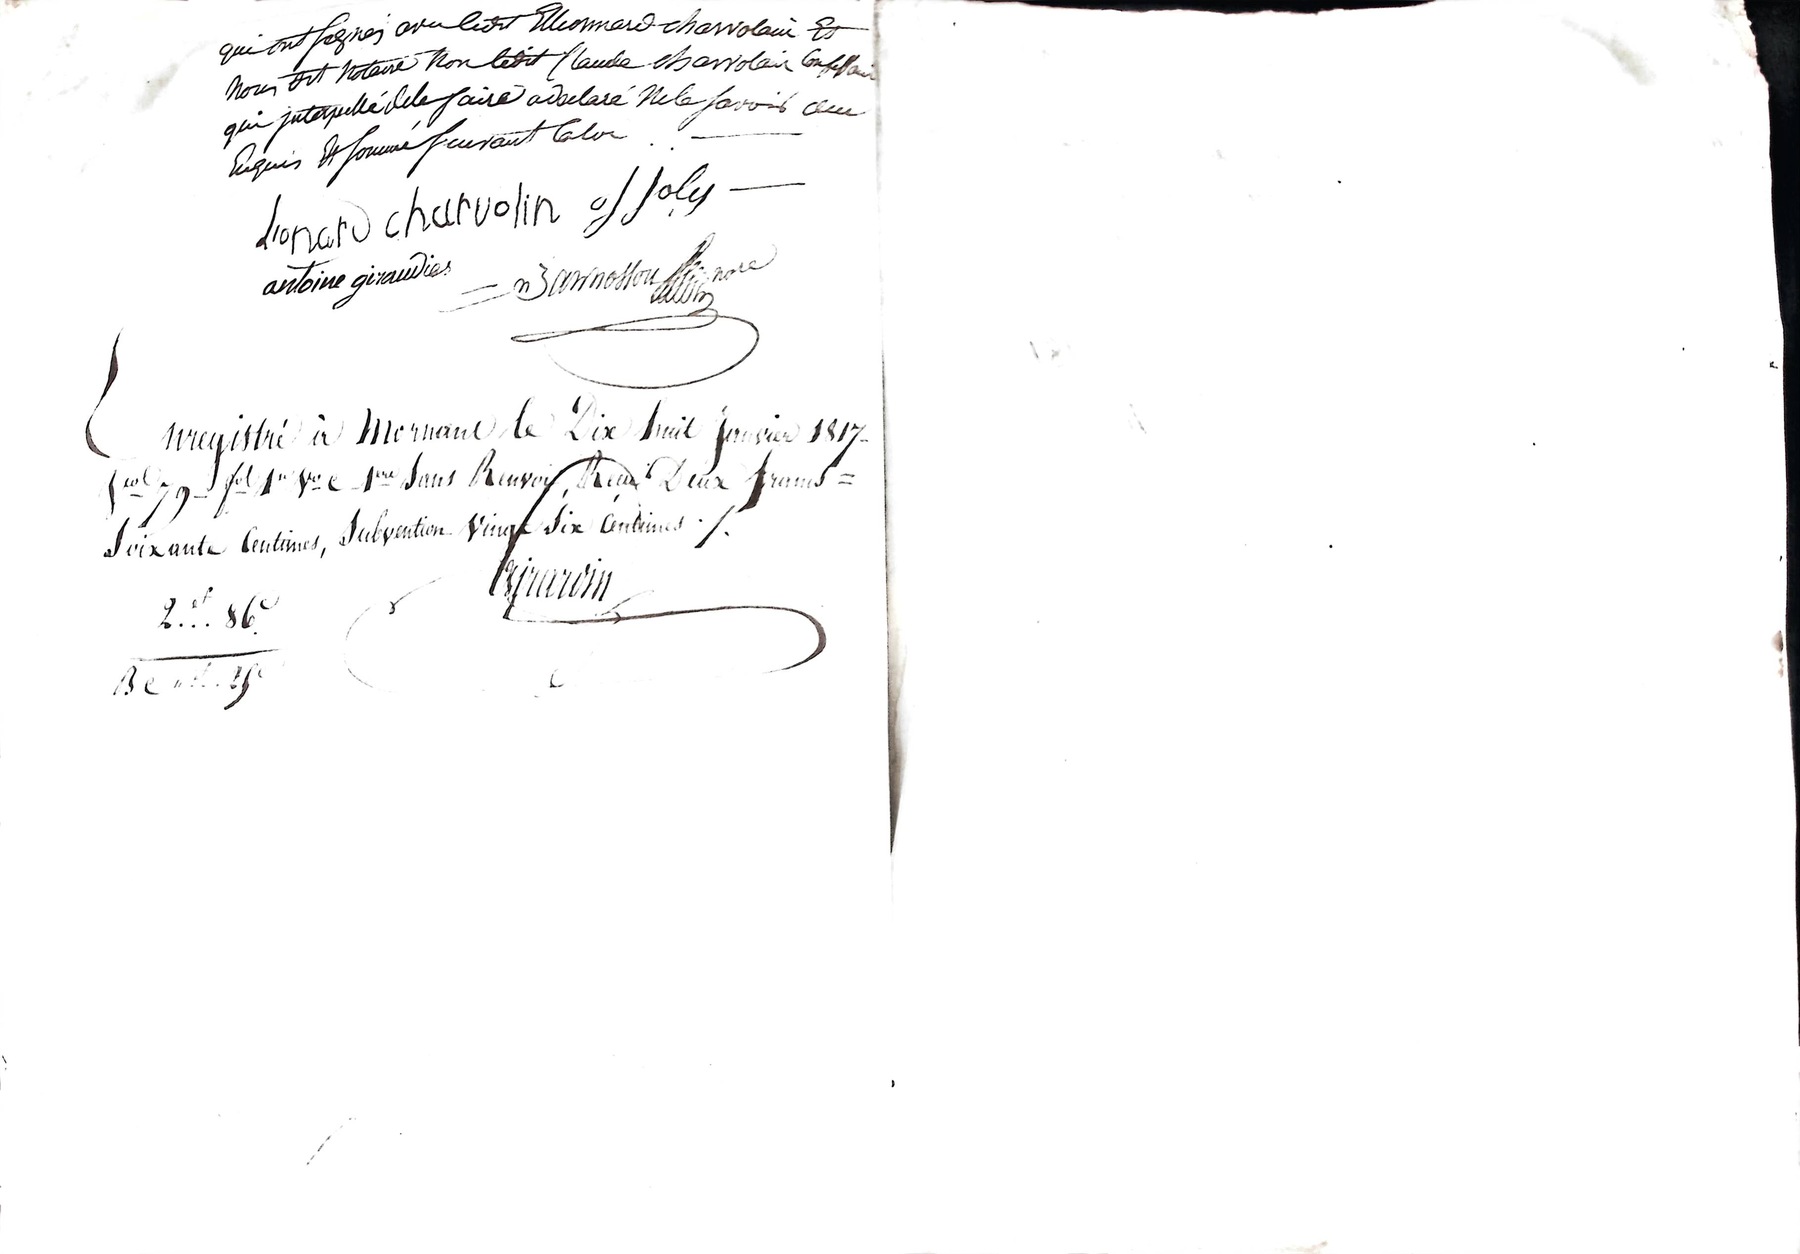 qui ont signés avec ledit Leonnard charvolain Et
nous dit notaire Non ledit Claude charvolain
qui interpellé de le faire a declaré Ne le savoir
Enquis Et sommé suivant la loi
Lionard charvolin
antoine giraudier
Enregistré à Mornant le Dix huit Janvier 1817
vol 79 fol 1er vo c 1ere Sans Renvoi, Recu Deux francs =
Soixante Centimes, Subvention Vingt Six Centimes ./.
Girardin
2 f... 86 c